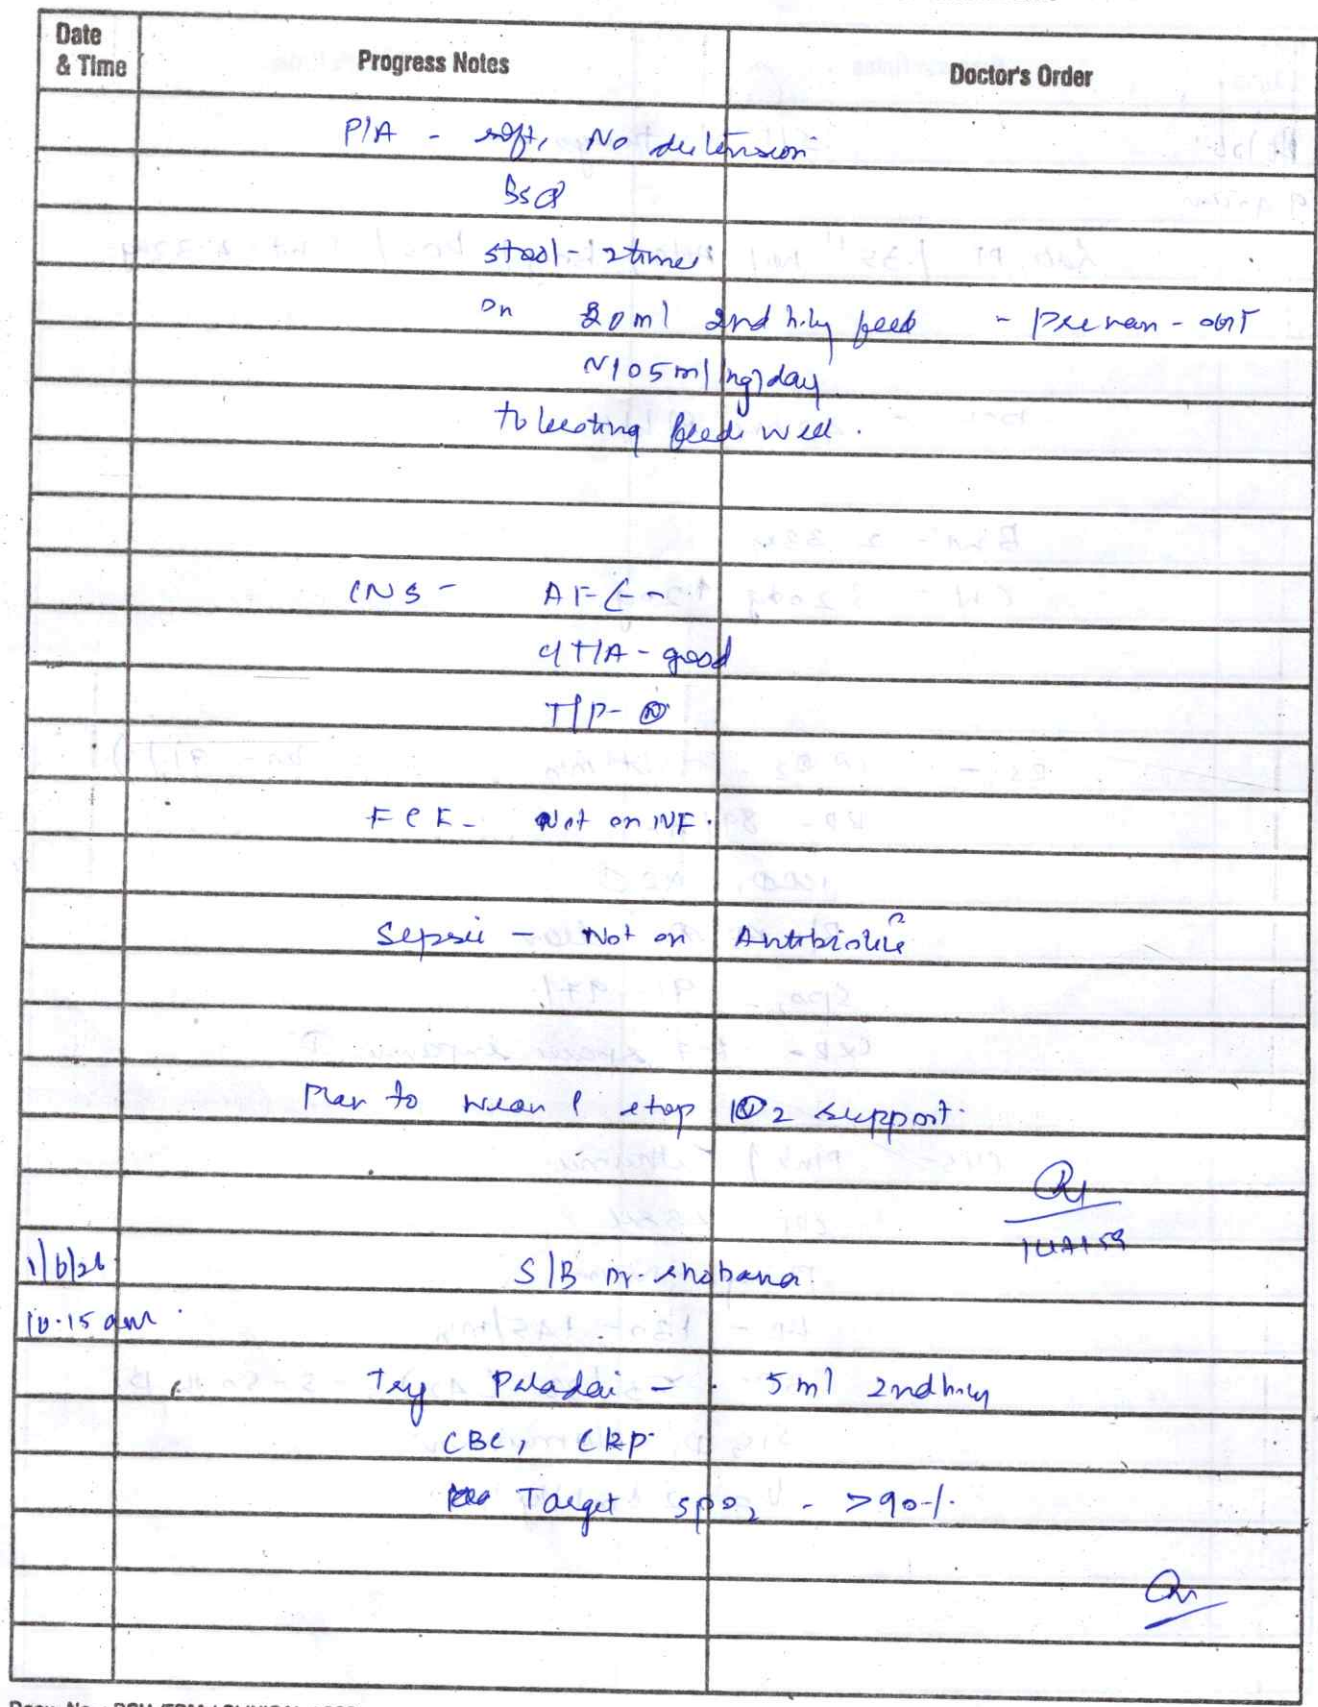 Date & Time Progress Notes Doctor's Order
P/A - soft, No distension
BS⊕
stool - 2 times
on 20ml 2nd hrly feed - Prenan - OGT
~105ml/kg/day
tolerating feeds well.
CNS - AF
C/T/A - good
T/P - Ⓝ
F&E - Not on IVF.
Sepsis - Not on Antibiotic
Plan to wean & stop O2 support.
1/6/26 S/B Dr. Shobana.
10.15 am
Try Paladai - 5ml 2nd hrly
CBC, CRP
Target SpO2 - >90%.